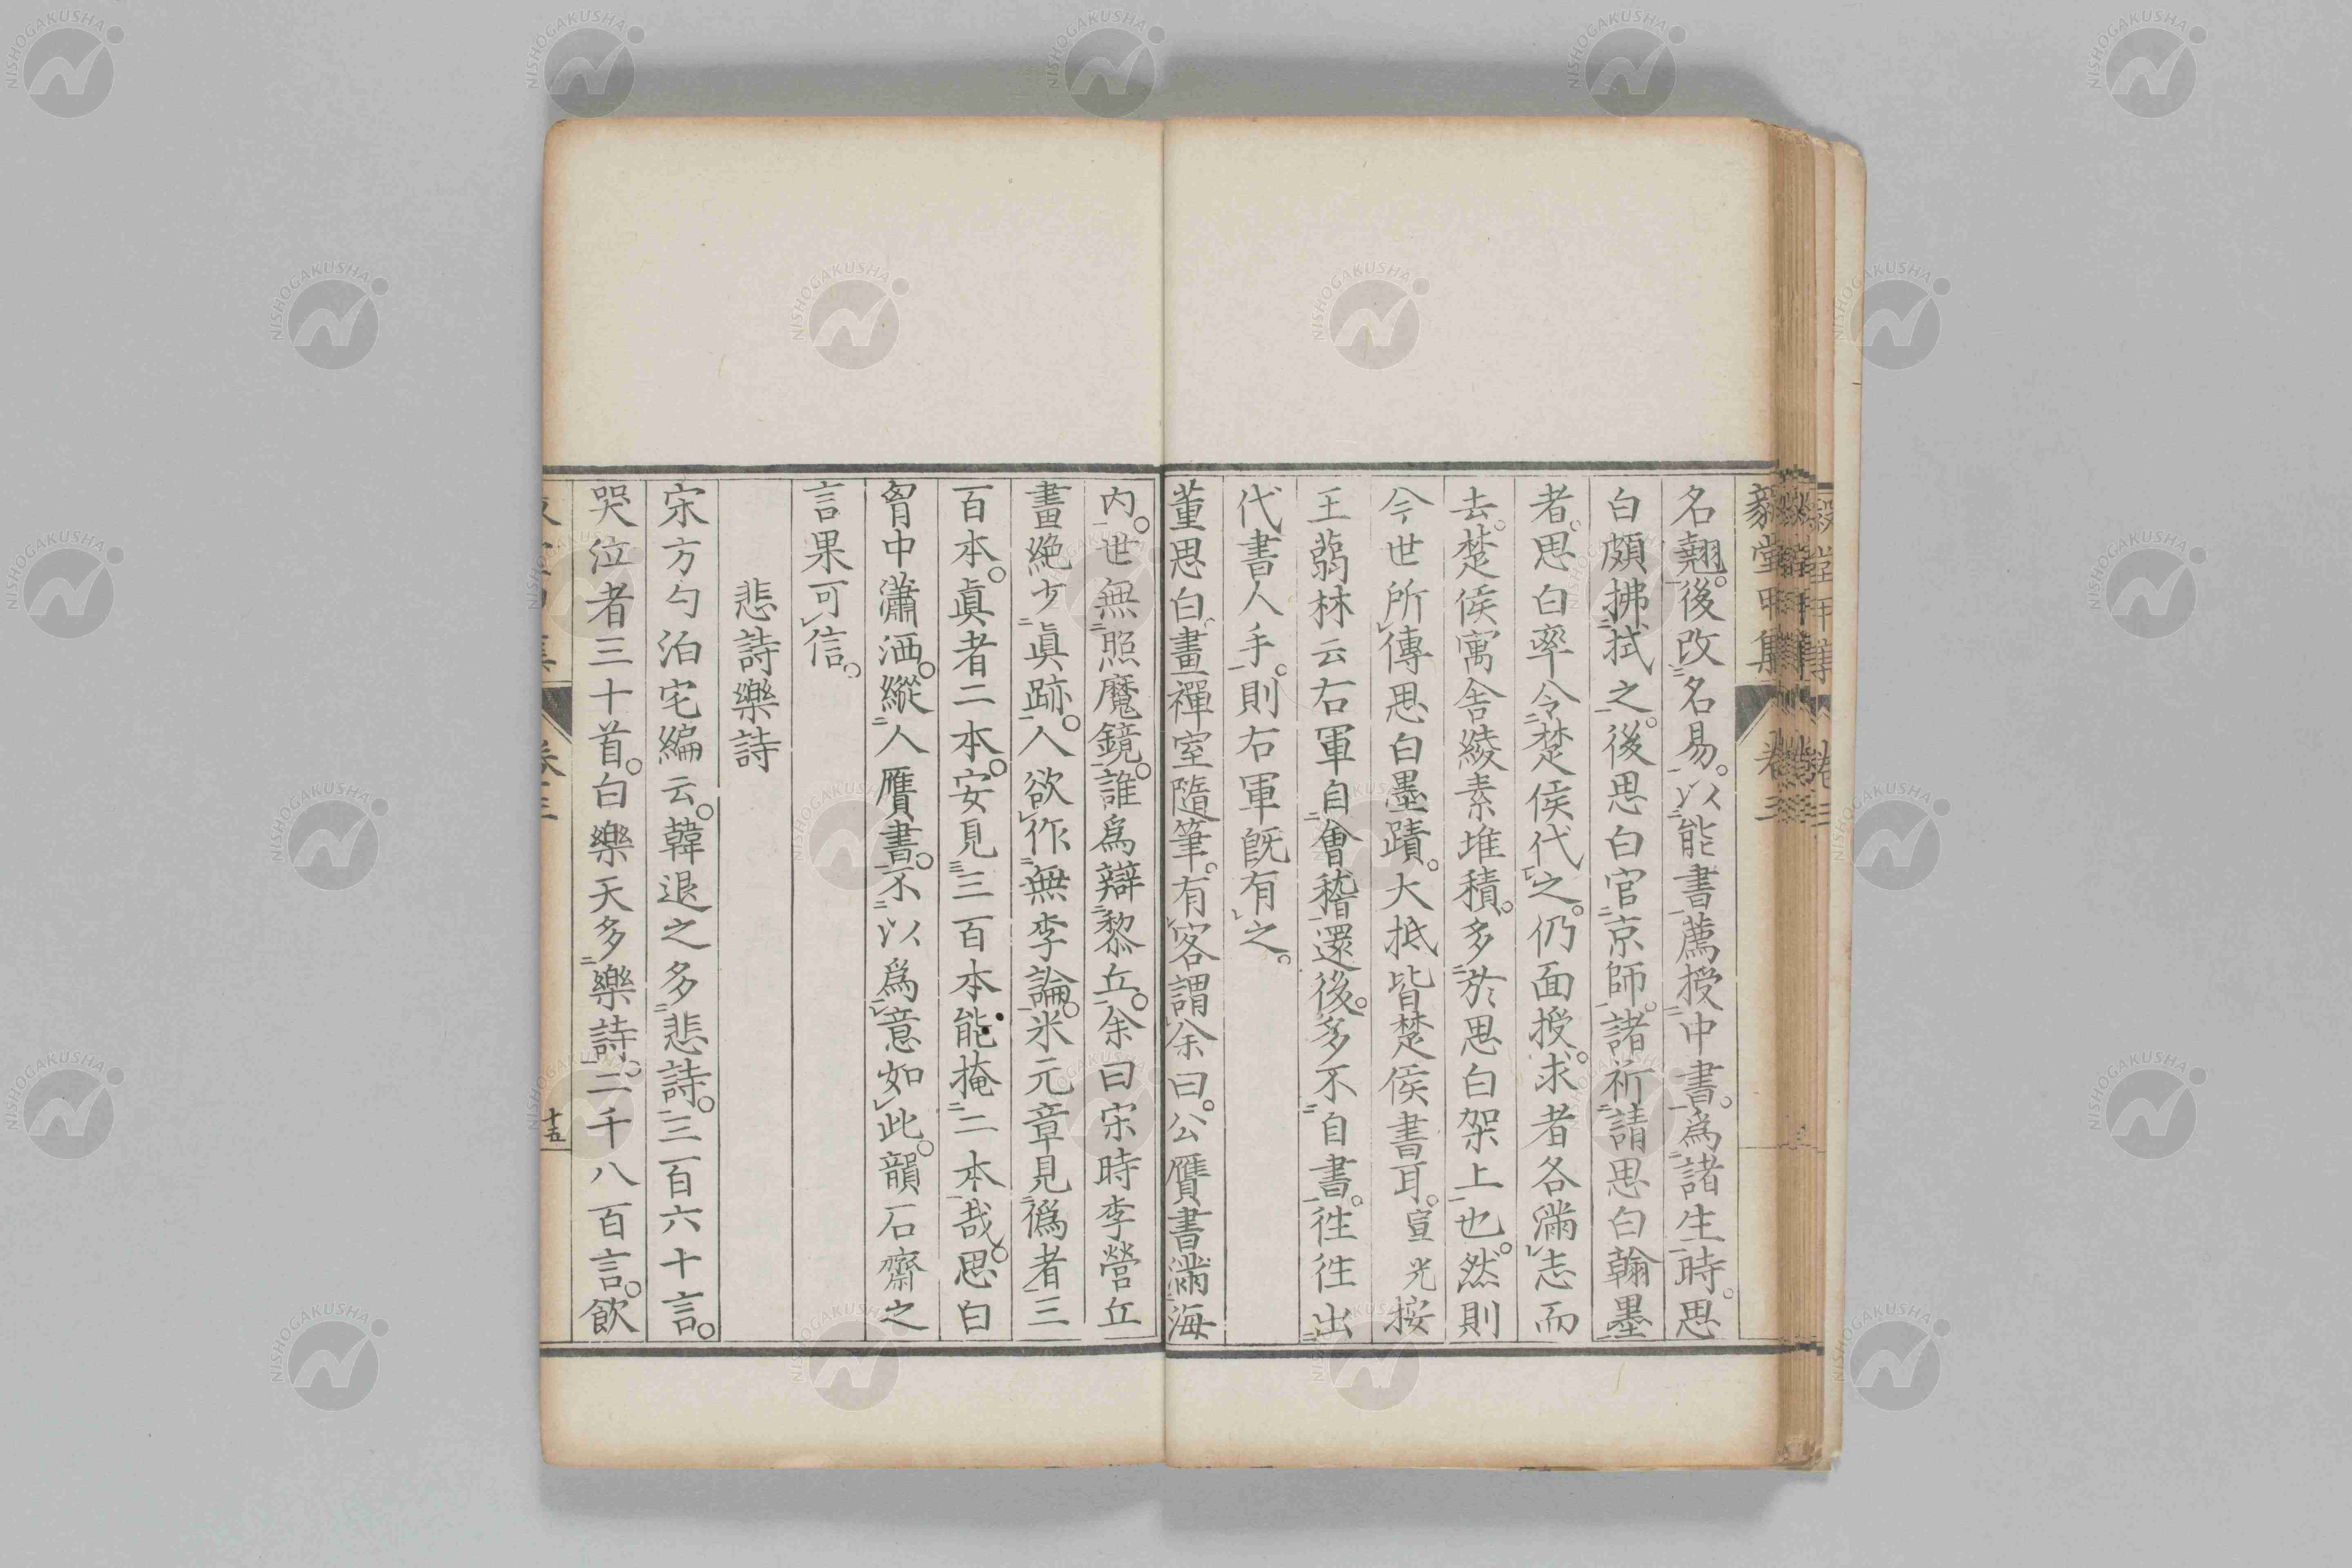 毅堂甲集 卷三
名翹。後改名易。以能書薦授中書。爲諸生時。思
白頗拂拭之。後思白官京師。諸祈請思白翰墨
者。思白率令楚侯代之。仍面授。求者各滿志而
去。楚侯寓舍綾素堆積。多於思白架上也。然則
今世所傳思白墨蹟。大抵皆楚侯書耳。宣光按
王蒻林云右軍自會稽還後。多不自書。徃徃出
代書人手。則右軍旣有之。
董思白。畫禪室隨筆。有客謂余曰。公贋書滿海
內。世無照魔鏡。誰爲辯黎丘。余曰宋時李營丘
畫絶少眞跡。人欲作無李論。米元章見僞者三
百本。眞者二本。安見三百本能掩二本哉。思白
胷中瀟洒。縱人贋書。不以爲意如此。韻石齋之
言果可信。
悲詩樂詩
宋方勺泊宅編云。韓退之多悲詩。三百六十言。
哭泣者三十首。白樂天多樂詩。二千八百言。飮
卷三
十五
NISHOGAKUSHA